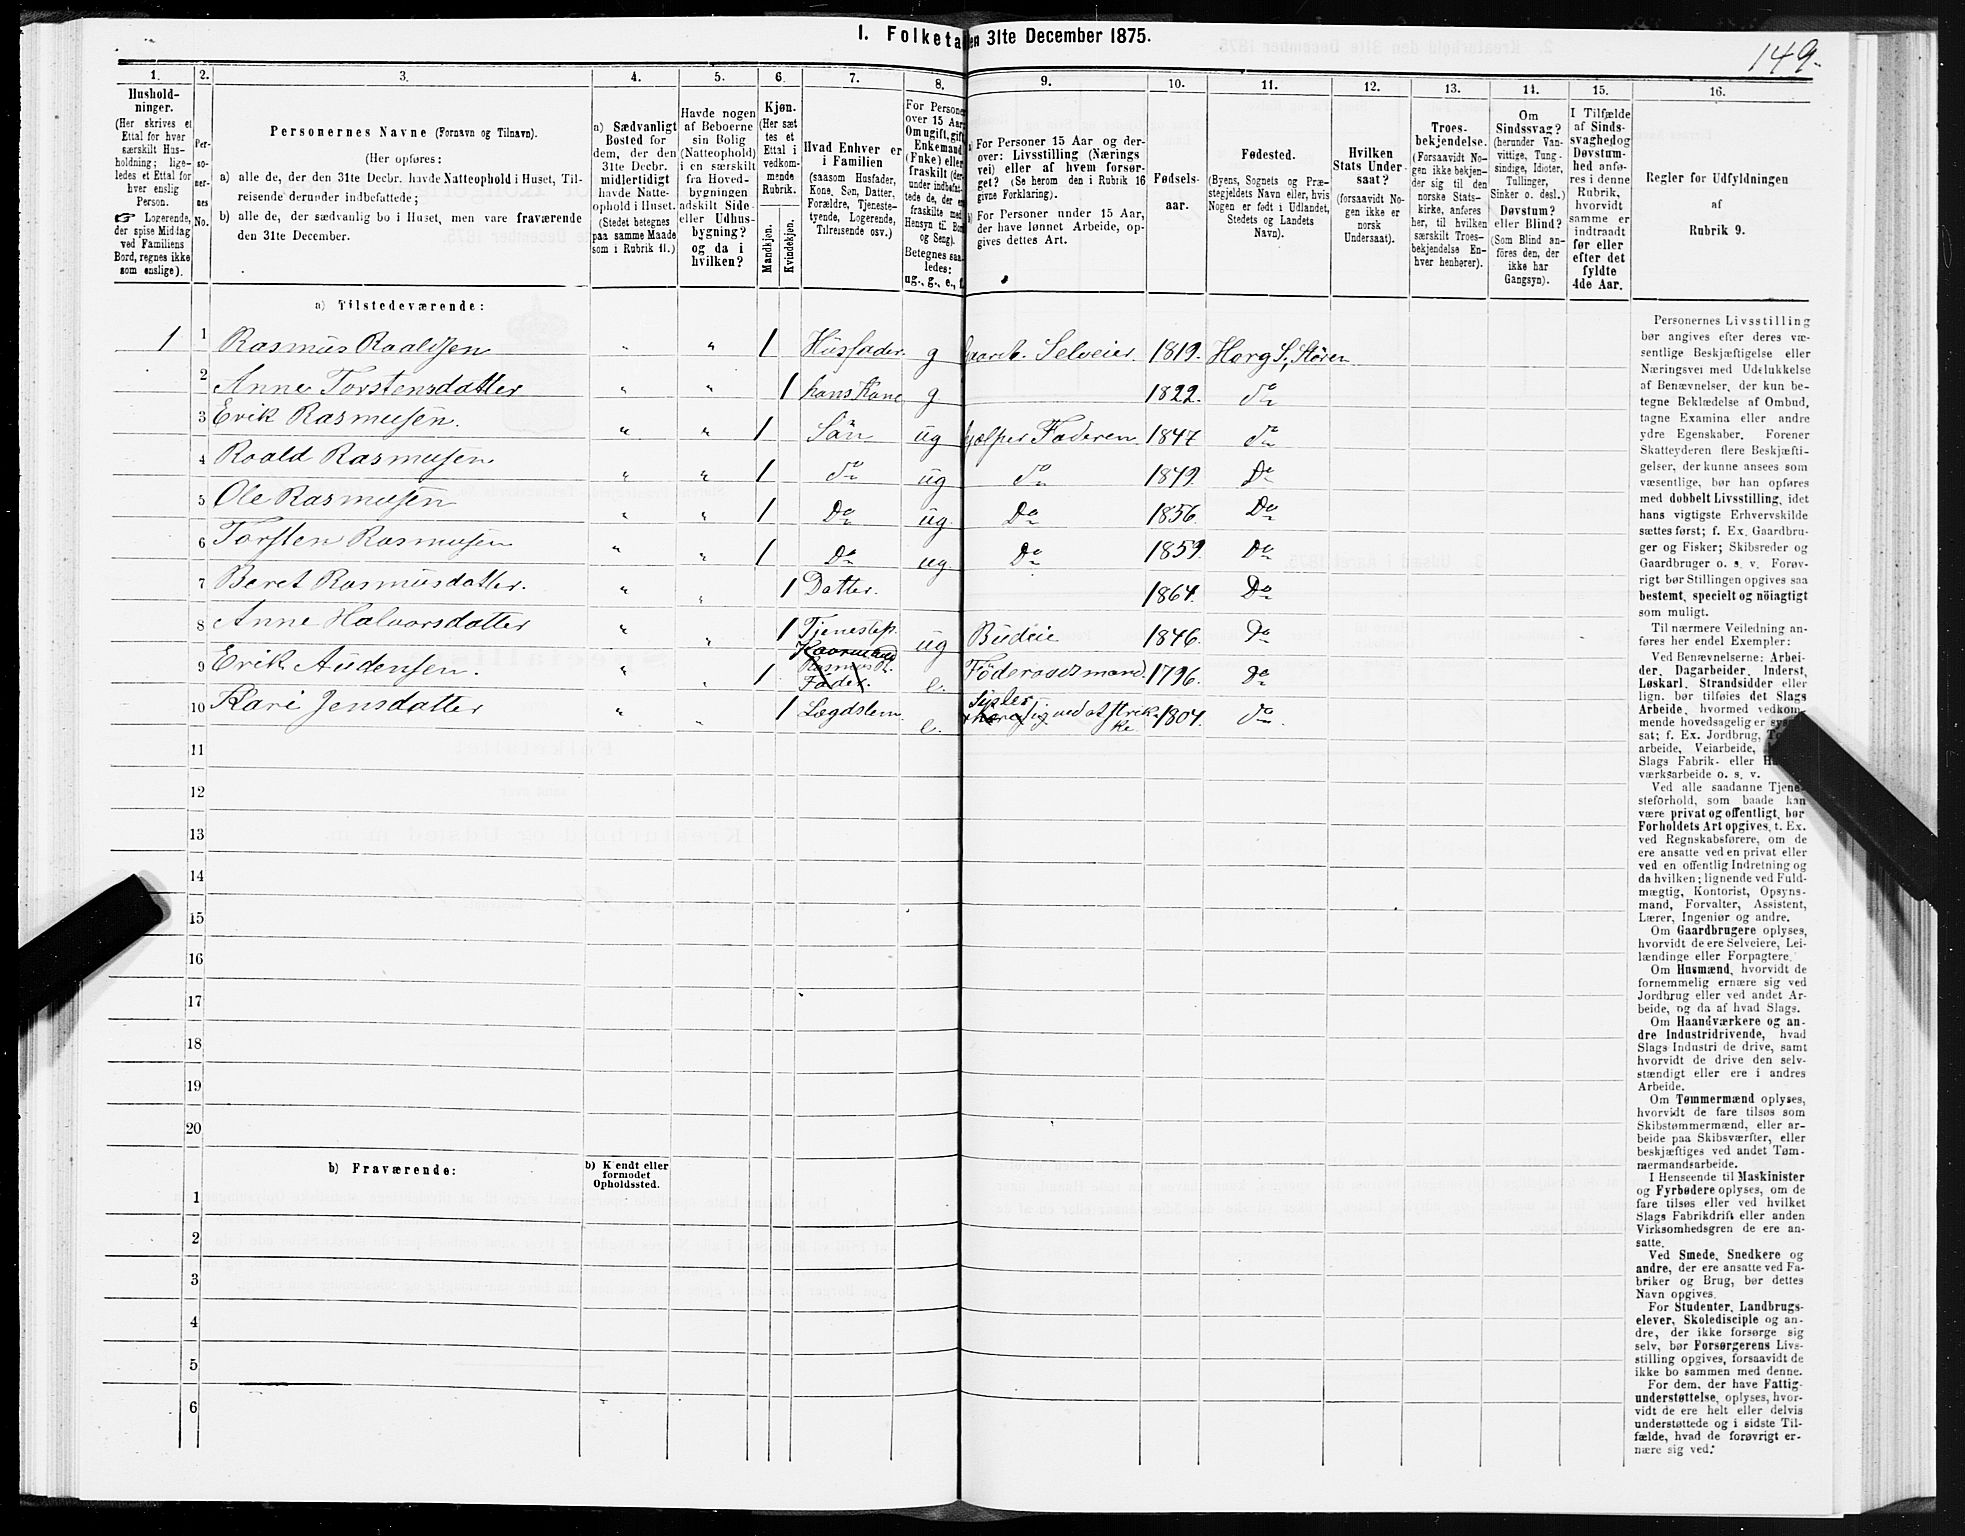 149.
I. Folketa en 31te December 1875.
1. 2. 3. 4. 5. 6. 7. 8. 9. 10. 11. 12. 13. 14. 15. 16.
Hushold-
ninger.
(Her skrives et
Ettal for hver
særskilt Hus-
holdning; lige-
ledes et Ettal for
hver enslig
Person.
☞ Logerende,
der spise Middag
ved Familiens
Bord, regnes ikke
som enslige).
Per-
so-
ner-
nes
No.
Personernes Navne (Fornavn og Tilnavn).
(Her opføres:
a) alle de, der den 31te Decbr. havde Natteophold i Huset, Til-
reisende derunder indbefattede;
b) alle de, der sædvanlig bo i Huset, men vare fraværende
den 31te December.
a) Sædvanligt
Bosted for
dem, der den
31te Decbr.
midlertidigt
havde Natte-
ophold i Huset.
(Stedet betegnes
paa samme Maade
som i Rubrik 11.)
Havde nogen
af Beboerne
sin Bolig
(Natteophold)
i en særskilt
fra Hoved-
bygningen
adskilt Side-
eller Udhus-
bygning?
og da i
hvilken?
Kjøn.
(Her sæt
tes et
Ettal i
vedkom-
mende
Rubrik.
Mandkjøn.
Kvindekjøn.
Hvad Enhver er
i Familien
(saasom Husfader,
Kone, Søn, Datter,
Forældre, Tjeneste-
tyende, Logerende,
Tilreisende osv.)
For Persone
over 15 Aar
Om ugift, gift
Enkemand
(Enke) eller
fraskilt (der-
under indbefat-
tede de, der ere
fraskilte med
Hensyn til Bord
og Seng).
Betegnes saa-
ledes:
ug., g., e., f.
a) For Personer 15 Aar og der-
over: Livsstilling (Nærings
vei) eller af hvem forsør-
get? (Se herom den i Rubrik 16
givne Forklaring).
b) For Personer under 15 Aar,
der have lønnet Arbeide, op-
gives dettes Art.
Fødsels-
aar.
Fødested.
(Byens, Sognets og Præ-
stegjeldets Navn eller, hvis
Nogen er født i Udlandet,
Stedets og Landets
Navn).
Hvilken
Stats Under-
saat?
(forsaavidt No-
gen ikke er
norsk
Undersaat).
Troes-
bekjendelse.
(Forsaavidt No-
gen ikke bekjen-
der sig til den
norske Stats-
kirke, anføres
her, til hvilken
særskilt Troes-
bekjendelse En-
hver henhører).
Om
Sindssvag?
(herunder Van-
vittige, Tung-
sindige, Idioter,
Tullinger,
Sinker o. desl.)
Døvstum?
eller Blind?
(Som Blind an-
føres den, der
ikke har
Gangsyn).
I Tilfælde
af Sinds-
svaghed og
Døvstum-
hed anfø-
res i denne
Rubrik,
hvorvidt
samme er
indtraadt
før eller
efter det
fyldte
4de Aar.
Regler for Udfyldningen
af
Rubrik 9.
a) Tilstedeværende:
1 1 Rasmus Roaldsen " " 1 Husfader g Gaardb. Selveier. 1819. Horg S., Støren
2 Anne Torstensdatter " " 1 hans Kone g 1822. do
3 Erik Rasmusen. " " 1 Sön ug hjælper Faderen 1847 do
4 Roald Rasmusen " " 1 do ug do 1849. Do
5 Ole Rasmusen " " 1 Do ug. Do 1856. Do
6 Torsten Rasmusen " " 1 Do ug Do 1859. Do
7 Beret Rasmusdatter. " " 1 Datter. 1864. Do
8 Anne Halvorsdatter " " 1 Tjenestep. ug Budeie 1846. Do
9 Erik Audensen. " " 1 Fader. e. Föderaadsmand. 1796. Do
10 Kari Jensdatter " " 1 Lægdslem e. Sysler med at strik-
ke. 1804. do
11
12
13
14
15
16
17
18
19
20
b) Fraværende:
b) Kendt eller
formodet
Opholdssted.
1
2
3
4
5
6
Personernes Livsstilling
bør angives efter deres væ-
sentlige Beskjæftigelse eller
Næringsvei med Udelukkelse
af Benævnelser, der kun be-
tegne Beklædelse af Ombud,
tagne Examina eller andre
ydre Egenskaber. Forener
Skatteyderen flere Beskjæfti-
gelser, der kunne ansees som
væsentlige, bør han opføres
med dobbelt Livsstilling, idet
hans vigtigste Erhvervskilde
sættes først; f. Ex. Gaardbru-
ger og Fisker; Skibsreder og
Gaardbruger o. s. v. Forøv-
rigt bør Stillingen opgives saa
bestemt, specielt og nöiagtigt
som muligt.
Til nærmere Veiledning an-
føres her endel Exempler:
Ved Benævnelserne: Arbei-
der, Dagarbeider, Inderst,
Løskarl, Strandsidder eller
lign. bør tilføies det Slags
Arbeide, hvormed vedkom-
mende hovedsagelig er syssel
sat; f. Ex. Jordbrug,
arbeide, Veiarbeide,
Slags Fabrik- eller
værksarbeide o. s. v.
Ved alle saadanne Tjene-
steforhold, som baade kan
være privat og offentligt, bør
Forholdets Art opgives, t. Ex.
ved Regnskabsførere, om de
ere ansatte ved en privat eller
ved en offentlig Indretning og
da hvilken; lignende ved Fuld-
mægtig, Kontorist, Opsyns-
mand, Forvalter, Assistent,
Lærer, Ingeniør og andre.
Om Gaardbrugere oplyses,
hvorvidt de ere Selveiere, Lei-
lændinge eller Forpagtere.
Om Husmænd, hvorvidt de
fornemmelig ernære sig ved
Jordbrug eller ved andet Ar-
beide, og da af hvad Slags.
Om Haandværkere og an-
dre Industridrivende, hvad
Slags Industri de drive, samt
hvorvidt de drive den selv-
stændigt eller ere i andres
Arbeide.
Om Tømmermænd oplyses,
hvorvidt de fare tilsøs som
Skibstømmermænd, eller ar-
beide paa Skibsværfter, eller
beskjæftiges ved andet Tøm-
mermandsarbeide.
I Henseende til Maskinister
og Fyrbødere oplyses, om de
fare tilsøs eller ved hvilket
Slags Fabrikdrift eller anden
Virksomhedsgren de ere an-
satte.
Ved Smede, Snedkere og
andre, der ere ansatte ved Fa-
briker og Brug, bør dettes
Navn opgives.
For Studenter, Landbrugs-
elever, Skoledisciple og an-
dre, der ikke forsørge sig
selv, bør Forsørgerens Livs-
stilling opgives, forsaavidt de
ikke bo sammen med denne.
For dem, der have Fattig-
understøttelse, oplyses, hvor-
vidt de ere helt eller delvis
understøttede og i sidste Til-
fælde, hvad de forøvrigt er-
nære sig ved.